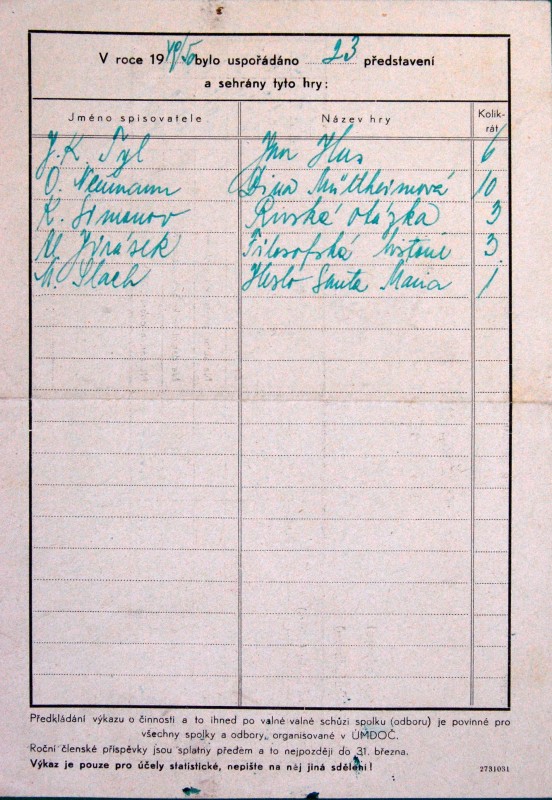 V roce 1949/50 bylo uspořádáno 23 představení
a sehrány tyto hry:
Jméno spisovatele Název hry Kolik-
rát
J. K. Tyl Jan Hus 6
O. Neumann Dina Müllheimová 10
K. Simonov Ruská otázka 3
Al. Jirásek Filosofská historie 3
M. Stach Heslo Santa Maria 1
Předkládání výkazu o činnosti a to ihned po valné valné schůzi spolku (odboru) je povinné pro
všechny spolky a odbory, organisované v ÚMDOČ.
Roční členské příspěvky jsou splatny předem a to nejpozději do 31. března.
Výkaz je pouze pro účely statistické, nepište na něj jiná sdělení!
2731031